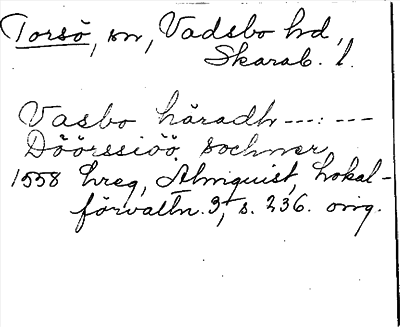 Torsö, sn, Vadsbo hd,
Skarab. l.
Vasbo häradh ---: ---
Döörssiöö sochner
1558 hreg, Almquist, Lokal-
förvaltn. 3, s. 236. orig.